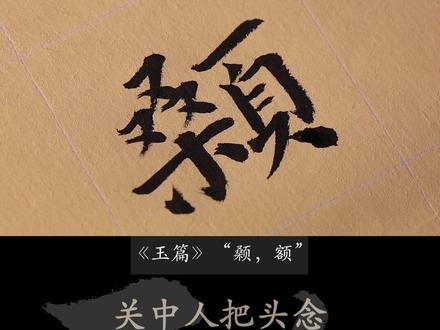 颡
《玉篇》“颡，额”
关中人把头念